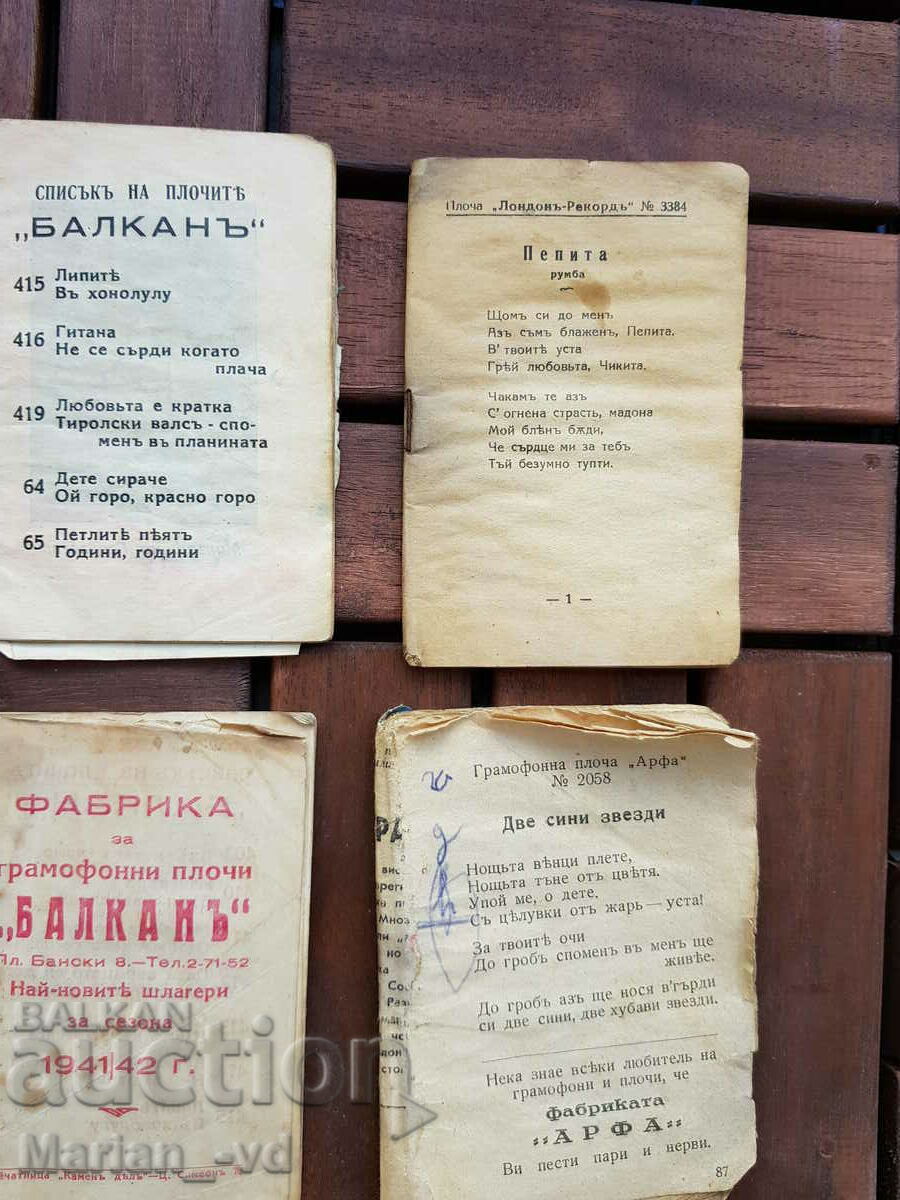 СПИСЪКЪ НА ПЛОЧИТѢ
„БАЛКАНЪ“
415 Липитѣ
Въ хонолулу
416 Гитана
Не се сърди когато
плача
419 Любовьта е кратка
Тиролски валсъ - спо-
менъ въ планината
64 Дете сираче
Ой горо, красно горо
65 Петлитѣ пѣятъ
Години, години
Плоча „Лондонъ-Рекордъ“ № 3384
Пепита
румба
Щомъ си до менъ
Азъ съмъ блаженъ, Пепита.
В' твоитѣ уста
Грѣй любовьта, Чикита.
Чакамъ те азъ
С' огнена страсть, мадона
Мой блѣнъ бѫди,
Че сърдце ми за тебъ
Тъй безумно тупти.
— 1 —
ФАБРИКА
за
грамофонни плочи
„БАЛКАНЪ“
Пл. Бански 8.—Тел. 2-71-52
Най-новитѣ шлагери
за сезона
1941/42 г.
печатница „Камен дѣлъ“—Ц. Симеонъ
Грамофонна плоча „Арфа“
№ 2058
Две сини звезди
Нощьта вѣнци плете,
Нощьта тъне отъ цвѣтя.
Упой ме, о дете.
Съ цѣлувки отъ жарь — уста!
За твоитѣ очи
До гробъ споменъ въ менъ ще
живѣе.
До гробъ азъ ще нося в'гърди
си две сини, две хубави звезди.
Нека знае всѣки любитель на
грамофони и плочи, че
Фабриката
„АРФА“
Ви пести пари и нерви.
87
BALKAN
auction
Marian_-vd